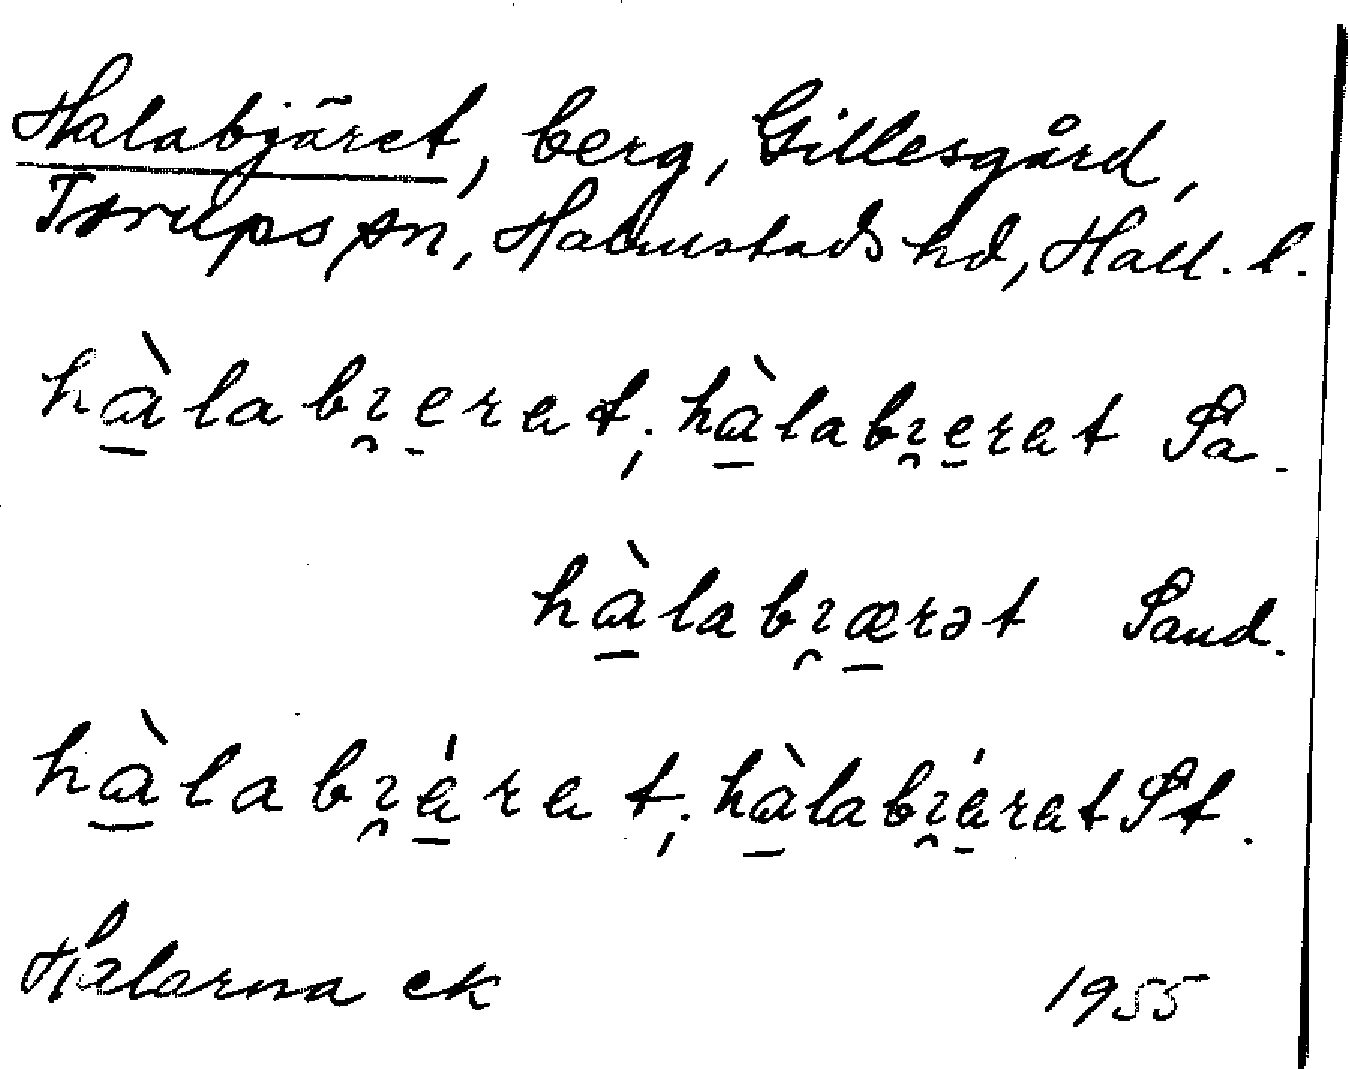 Halabjäret, berg, Gillesgård,
Torups sn, Halmstads hd, Hall. l.
hà̱labɿ̯e̱rat; hà̱labɿ̯e̱rat Pa.
hà̱labɿ̯æ̱rət Sand.
hà̱labɿ̯á̱rat; hà̱labɿ̯á̱rat St.
Halarna ek 1955